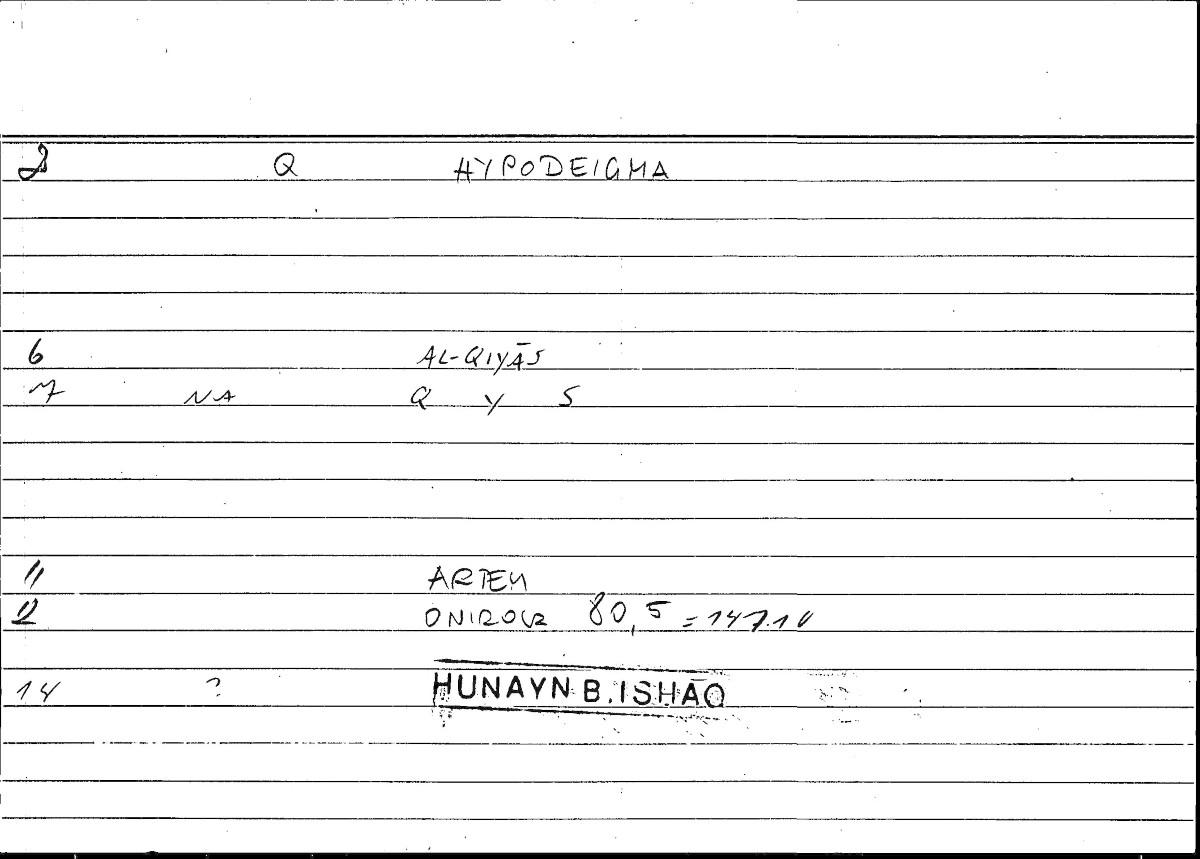 2 Q HYPODEIGMA
6 AL-QIYĀS
7 NA Q Y S
11 ARTEM
12 ONIROCR 80,5 = 147.10
14 ? HUNAYN B. ISHĀQ